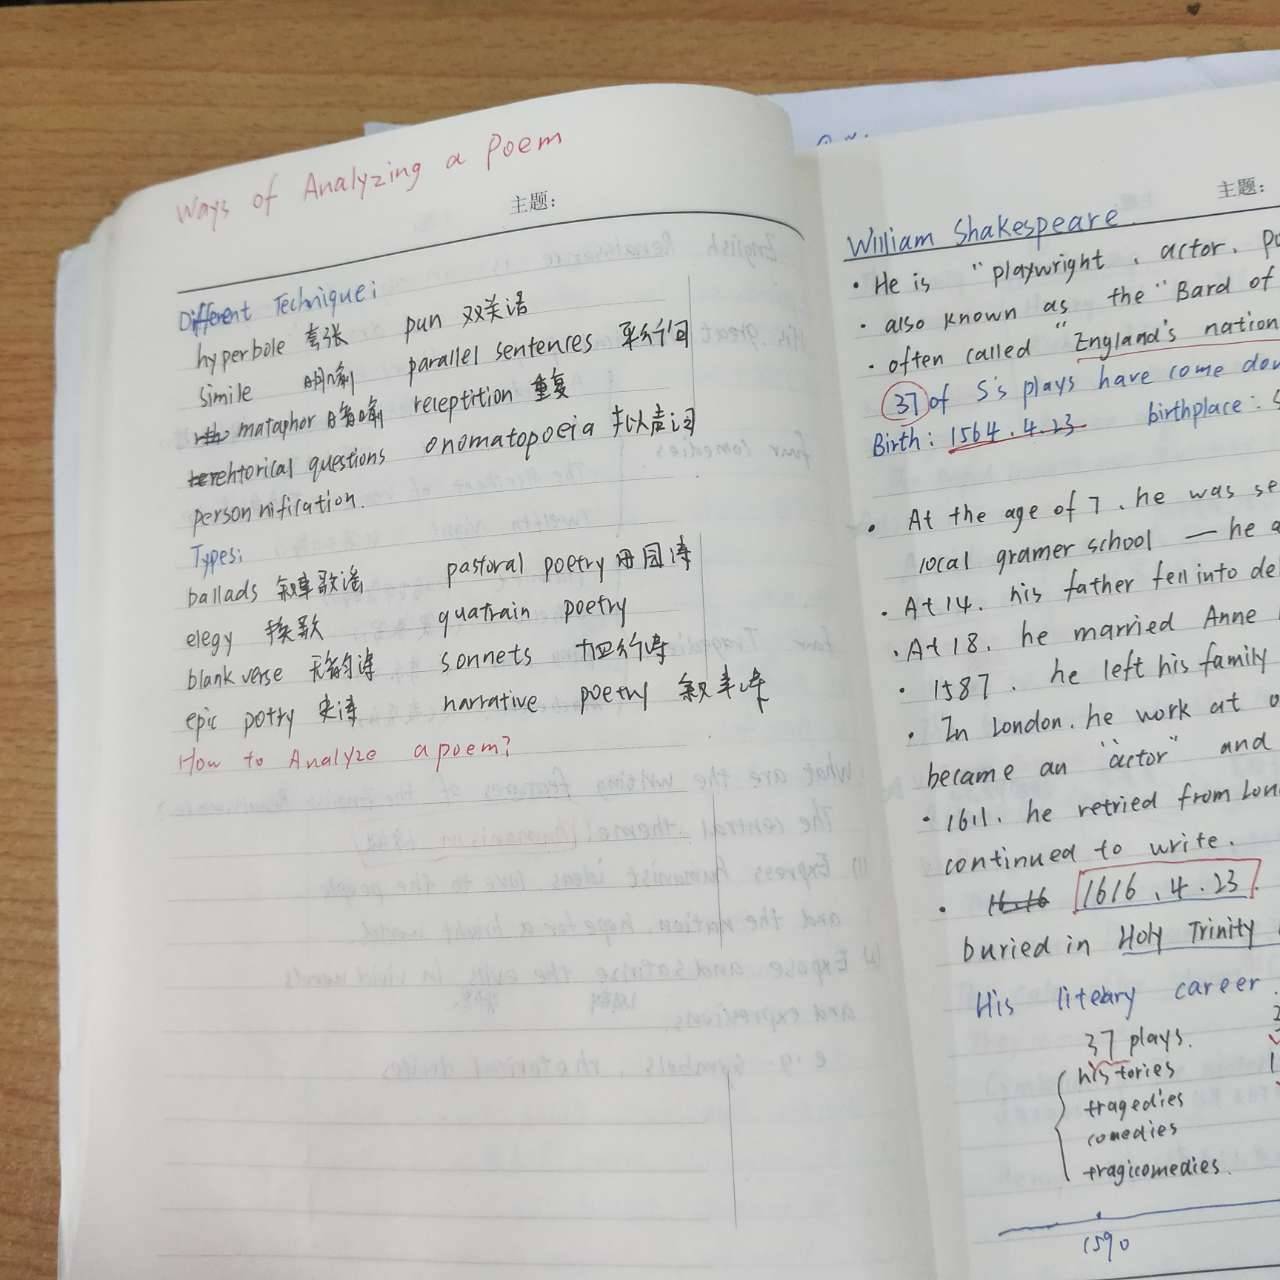 Ways of Analyzing a Poem
主题:
Different Technique:
hyperbole 夸张 pun 双关语
simile 明喻 parallel sentences 平行句
mataphor 暗喻 receptition 重复
rehtorical questions onomatopoeia 拟声词
personnification.
Types:
ballads 叙事歌谣 pastoral poetry 田园诗
elegy 挽歌 quatrain poetry
blank verse 无韵诗 sonnets 十四行诗
epic potry 史诗 narrative poetry 叙事诗
How to Analyze a poem?
主题:
William Shakespeare
• He is "playwright, actor, po
• also known as the "Bard of
• often called "England's nation
37 of S's plays have come dow
Birth: 1564.4.23 birthplace: S
• At the age of 7, he was se
local gramer school — he a
• At 14, his father fell into de
• At 18, he married Anne
• 1587, he left his family
• In London, he work at
became an "actor" and
• 1611, he retried from Lon
continued to write.
• 16.16 1616.4.23
buried in Holy Trinity
His literary career.
37 plays.
histories
tragedies
comedies
tragicomedies.
1590